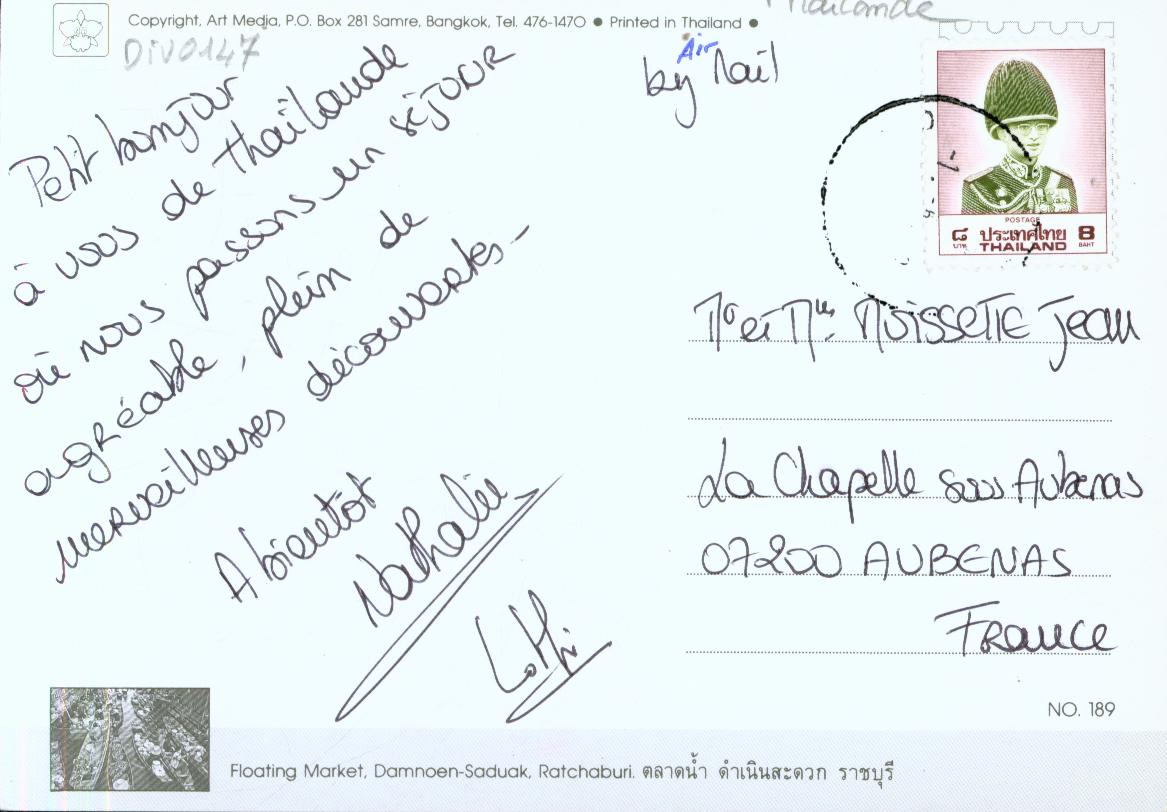 Copyright, Art Media, P.O. Box 281 Samre, Bangkok, Tel. 476-1470 ● Printed in Thailand ●
Thaïlande
DIV0147
by Air Mail
Petit bonjour
à vous de thaïlande
où nous passons un séjour
agréable, plein de
merveilleuses découvertes-
A bientôt
Nathalie
POSTAGE
๘ ประเทศไทย 8
บาท THAILAND BAHT
Mr et Mme NOISSETTE Jean
La Chapelle sous Aubenas
07200 AUBENAS
France
NO. 189
Floating Market, Damnoen-Saduak, Ratchaburi. ตลาดน้ำ ดำเนินสะดวก ราชบุรี